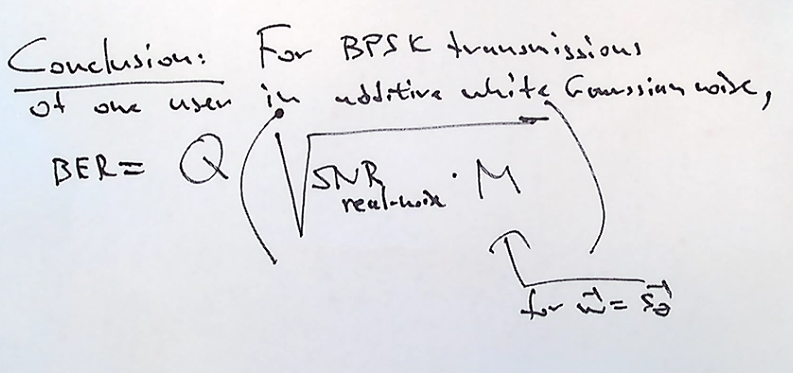 Conclusion: For BPSK transmissions
of one user in additive white Gaussian noise,
BER = Q (√SNR real-noise · M)
for w⃗ = s⃗θ